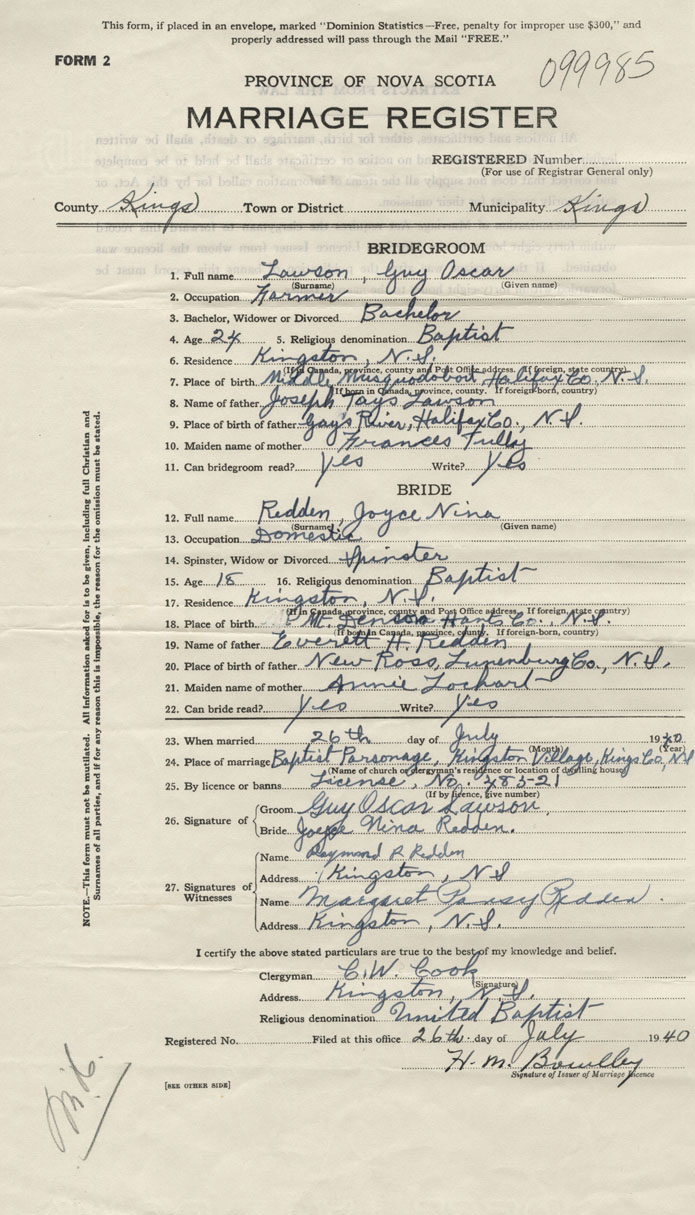 This form, if placed in an envelope, marked "Dominion Statistics—Free, penalty for improper use $300," and
properly addressed will pass through the Mail "FREE."
FORM 2
099985
PROVINCE OF NOVA SCOTIA
MARRIAGE REGISTER
REGISTERED Number
(For use of Registrar General only)
County Kings Town or District Municipality Kings
BRIDEGROOM
1. Full name Lawson, Guy Oscar
(Surname) (Given name)
2. Occupation Farmer
3. Bachelor, Widower or Divorced Bachelor
4. Age 24 5. Religious denomination Baptist
6. Residence Kingston, N.S.
(If in Canada, province, county and Post Office address. If foreign, state country)
7. Place of birth Middle Musquodoboit Halifax Co. N.S.
(If born in Canada, province, county. If foreign-born, country)
8. Name of father Joseph Tays Lawson
9. Place of birth of father Gay's River, Halifax Co., N.S.
10. Maiden name of mother Frances Tully
11. Can bridegroom read? Yes Write? Yes
BRIDE
12. Full name Redden, Joyce Nina
(Surname) (Given name)
13. Occupation Domestic
14. Spinster, Widow or Divorced Spinster
15. Age 18 16. Religious denomination Baptist
17. Residence Kingston, N.S.
(If in Canada, province, county and Post Office address. If foreign, state country)
18. Place of birth Mt. Denson Hants Co., N.S.
(If born in Canada, province, county. If foreign-born, country)
19. Name of father Everett H. Redden
20. Place of birth of father New Ross, Lunenburg Co., N.S.
21. Maiden name of mother Annie Lochart
22. Can bride read? Yes Write? Yes
23. When married 26th day of July 1940
(Month) (Year)
24. Place of marriage Baptist Parsonage, Kingston Village, Kings Co, NS
(Name of church or clergyman's residence or location of dwelling house)
25. By licence or banns License, No.
(If by licence, give number)
26. Signature of Groom Guy Oscar Lawson,
Bride Joyce Nina Redden.
27. Signatures of Witnesses
Name Raymond R Redden
Address Kingston, N S
Name Margaret Pansy Redden.
Address Kingston, N.S.
I certify the above stated particulars are true to the best of my knowledge and belief.
Clergyman C. W. Cook
(Signature)
Address Kingston, N.S.
Religious denomination United Baptist
Registered No. Filed at this office 26th. day of July 1940
H. M.
Signature of Issuer of Marriage Licence
[SEE OTHER SIDE]
NOTE.—This form must not be mutilated. All information asked for is to be given, including full Christian and
Surnames of all parties, and if for any reason this is impossible, the reason for the omission must be stated.